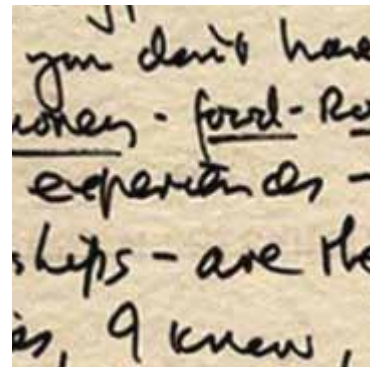 you don't have
money - food - Ro
experiences -
ships - are the
es, I knew,